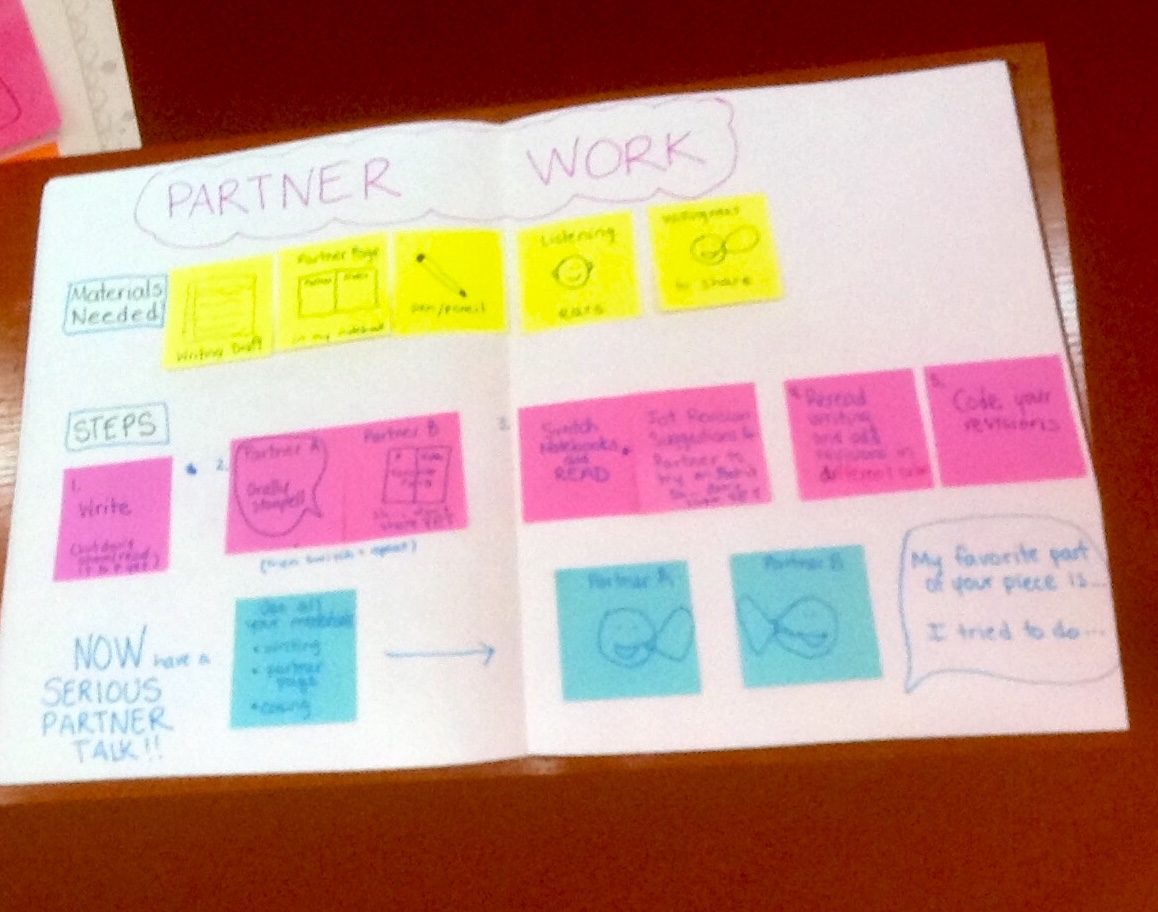 PARTNER WORK
Materials
Needed
Writing Draft
Partner Page
in my notebook
pen/pencil
Listening
ears
Willingness
to share
STEPS
1.
Write
2.
Partner A
Orally
Partner B
share yet
(then switch + repeat)
3.
Switch
Notebooks
and
READ
Jot Revision
Suggestions for
Partner to
try
4. Reread
writing
and add
revisions in
different color
5.
Code your
revisions
NOW have a
SERIOUS
PARTNER
TALK!!
Use all
your materials
• writing
• partner
page
• coding
Partner A
Partner B
My favorite part
of your piece is...
I tried to do...